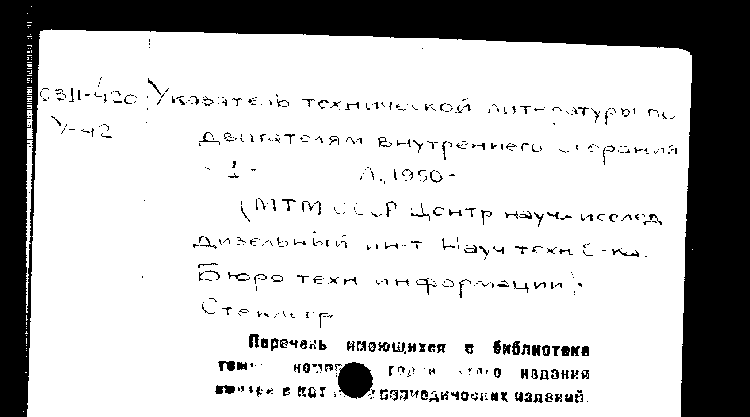 С311-420 Указатель технической литературы по
У-42 двигателям внутреннего сгорания
- 1 - Л., 1950-
(МТМ СССР Центр науч. исслед
дизельный ин-т Науч техн б-ка.
Бюро техн информации).
Стеклогр
Перечень имеющихся в библиотеке
номеров годов этого издания
смотри в КОТ периодических изданий.